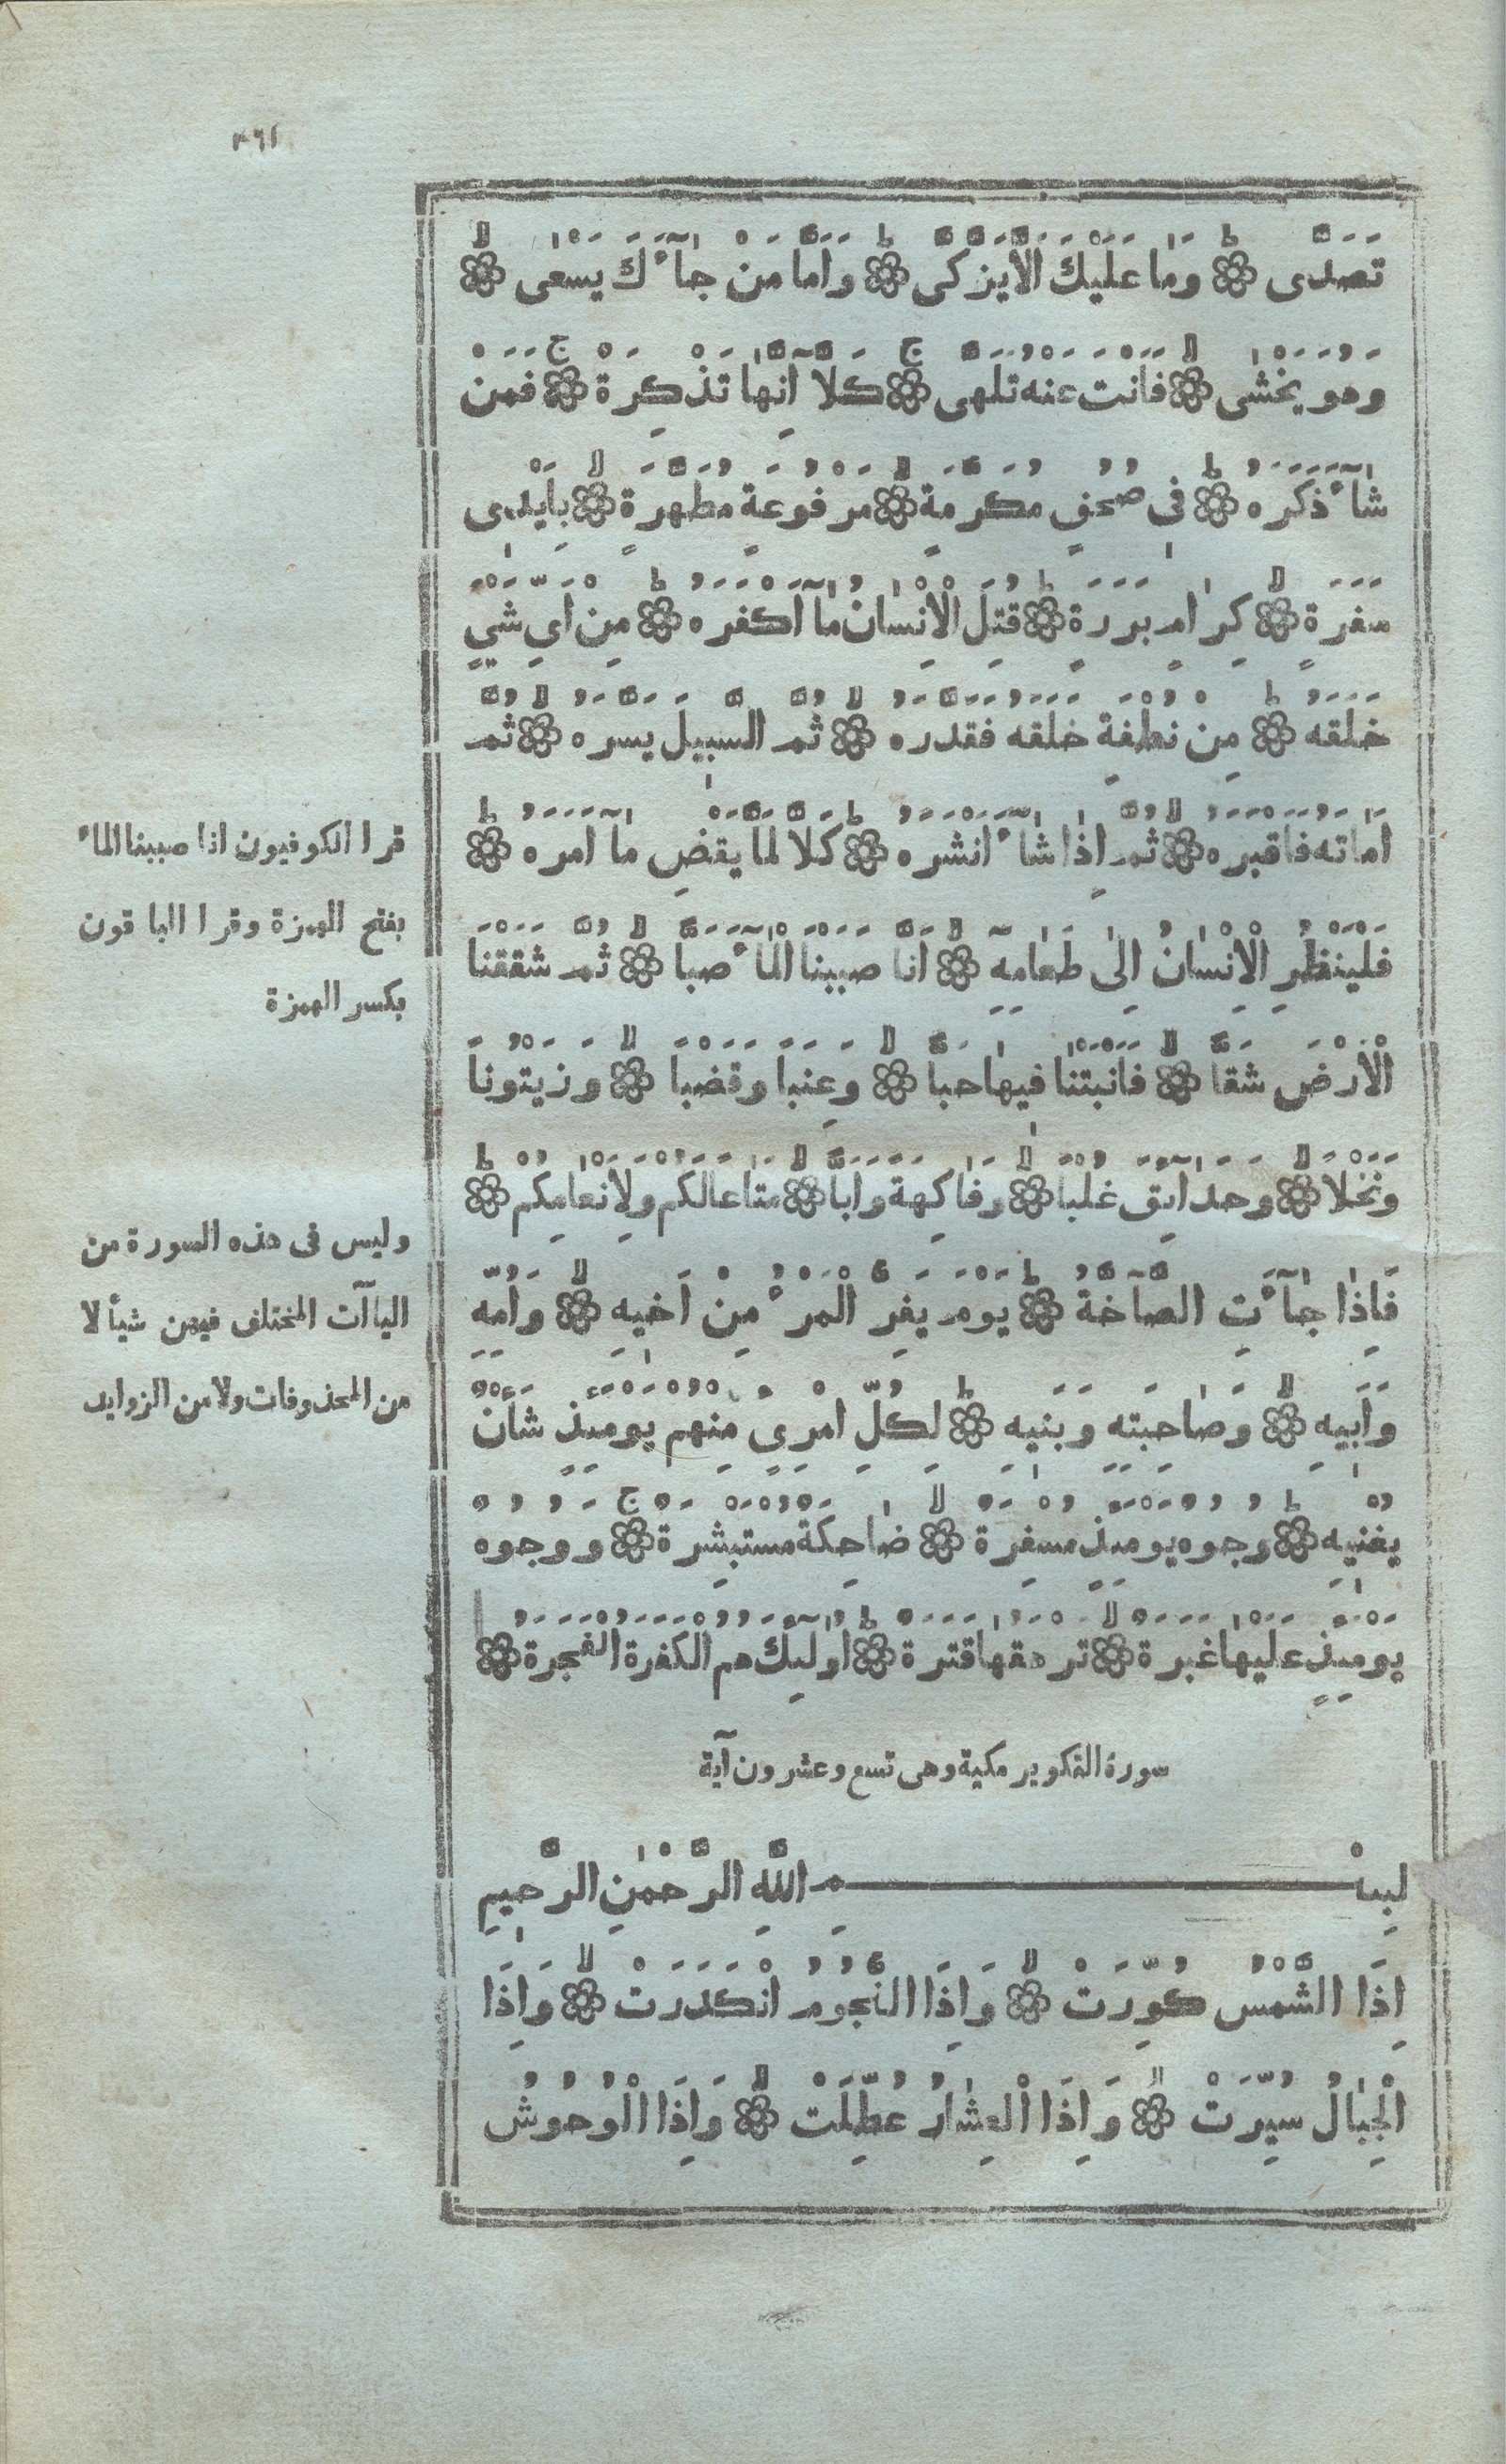 ٤٦١
تَصَدَّى ۞ وَمَا عَلَيْكَ اَلَّا يَزَّكَّى ۞ وَاَمَّا مَنْ جَآءَكَ يَسْعٰى ۞
وَهُوَ يَخْشٰى ۞ فَاَنْتَ عَنْهُ تَلَهَّى ۞ كَلَّآ اِنَّهَا تَذْكِرَةٌ ۞ فَمَنْ
شَآءَ ذَكَرَهُ ۞ فِى صُحُفٍ مُكَرَّمَةٍ ۞ مَرْفُوعَةٍ مُطَهَّرَةٍ ۞ بِاَيْدِى
سَفَرَةٍ ۞ كِرَامٍ بَرَرَةٍ ۞ قُتِلَ الْاِنْسَانُ مَآ اَكْفَرَهُ ۞ مِنْ اَىِّ شَيْءٍ
خَلَقَهُ ۞ مِنْ نُطْفَةٍ خَلَقَهُ فَقَدَّرَهُ ۞ ثُمَّ السَّبِيلَ يَسَّرَهُ ۞ ثُمَّ
اَمَاتَهُ فَاَقْبَرَهُ ۞ ثُمَّ اِذَا شَآءَ اَنْشَرَهُ ۞ كَلَّا لَمَّا يَقْضِ مَآ اَمَرَهُ ۞
فَلْيَنْظُرِ الْاِنْسَانُ اِلٰى طَعَامِهٖ ۞ اَنَّا صَبَبْنَا الْمَآءَ صَبًّا ۞ ثُمَّ شَقَقْنَا
الْاَرْضَ شَقًّا ۞ فَاَنْبَتْنَا فِيهَا حَبًّا ۞ وَعِنَبًا وَقَضْبًا ۞ وَزَيْتُونًا
وَنَخْلًا ۞ وَحَدَآئِقَ غُلْبًا ۞ وَفَاكِهَةً وَاَبًّا ۞ مَتَاعًا لَكُمْ وَلِاَنْعَامِكُمْ ۞
فَاِذَا جَآءَتِ الصَّآخَّةُ ۞ يَوْمَ يَفِرُّ الْمَرْءُ مِنْ اَخِيهِ ۞ وَاُمِّهٖ
وَاَبِيهِ ۞ وَصَاحِبَتِهٖ وَبَنِيهِ ۞ لِكُلِّ امْرِئٍ مِنْهُمْ يَوْمَئِذٍ شَأْنٌ
يُغْنِيهِ ۞ وُجُوهٌ يَوْمَئِذٍ مُسْفِرَةٌ ۞ ضَاحِكَةٌ مُسْتَبْشِرَةٌ ۞ وَوُجُوهٌ
يَوْمَئِذٍ عَلَيْهَا غَبَرَةٌ ۞ تَرْهَقُهَا قَتَرَةٌ ۞ اُولٰٓئِكَ هُمُ الْكَفَرَةُ الْفَجَرَةُ ۞
سورة التكوير مكية وهى تسع وعشرون آية
بِسْمِ اللّٰهِ الرَّحْمٰنِ الرَّحِيمِ
اِذَا الشَّمْسُ كُوِّرَتْ ۞ وَاِذَا النُّجُومُ انْكَدَرَتْ ۞ وَاِذَا
الْجِبَالُ سُيِّرَتْ ۞ وَاِذَا الْعِشَارُ عُطِّلَتْ ۞ وَاِذَا الْوُحُوشُ
قرا الكوفيون انا صببنا الماء
بفتح الهمزة وقرا الباقون
بكسر الهمزة
وليس فى هذه السورة من
الياآت المختلف فيهن شيأ لا
من المحذوفات ولا من الزوايد